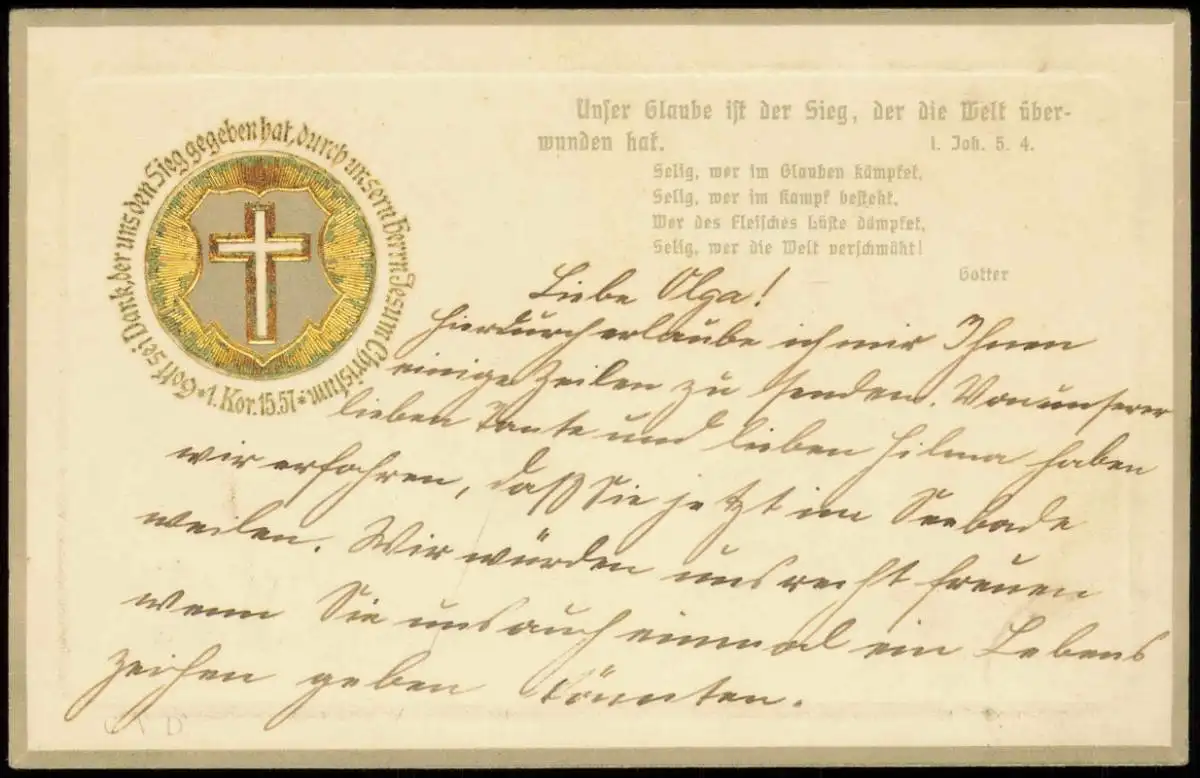 Gott sei Dank, der uns den Sieg gegeben hat, durch unsern Herrn Jesum Christum * 1. Kor. 15.57 *
Unser Glaube ist der Sieg, der die Welt über-
wunden hat. 1. Joh. 5. 4.
Selig, wer im Glauben kämpfet,
Selig, wer im Kampf besteht,
Wer des Fleisches Lüste dämpfet,
Selig, wer die Welt verschmäht!
Gotter
Liebe Olga!
Hierdurch erlaube ich mir Ihnen
einige Zeilen zu senden. Von unserer
lieben Tante und lieben Hilma haben
wir erfahren, daß Sie jetzt im Seebade
weilen. Wir würden uns recht freuen
wenn Sie uns auch einmal ein Lebens
zeichen geben könnten.